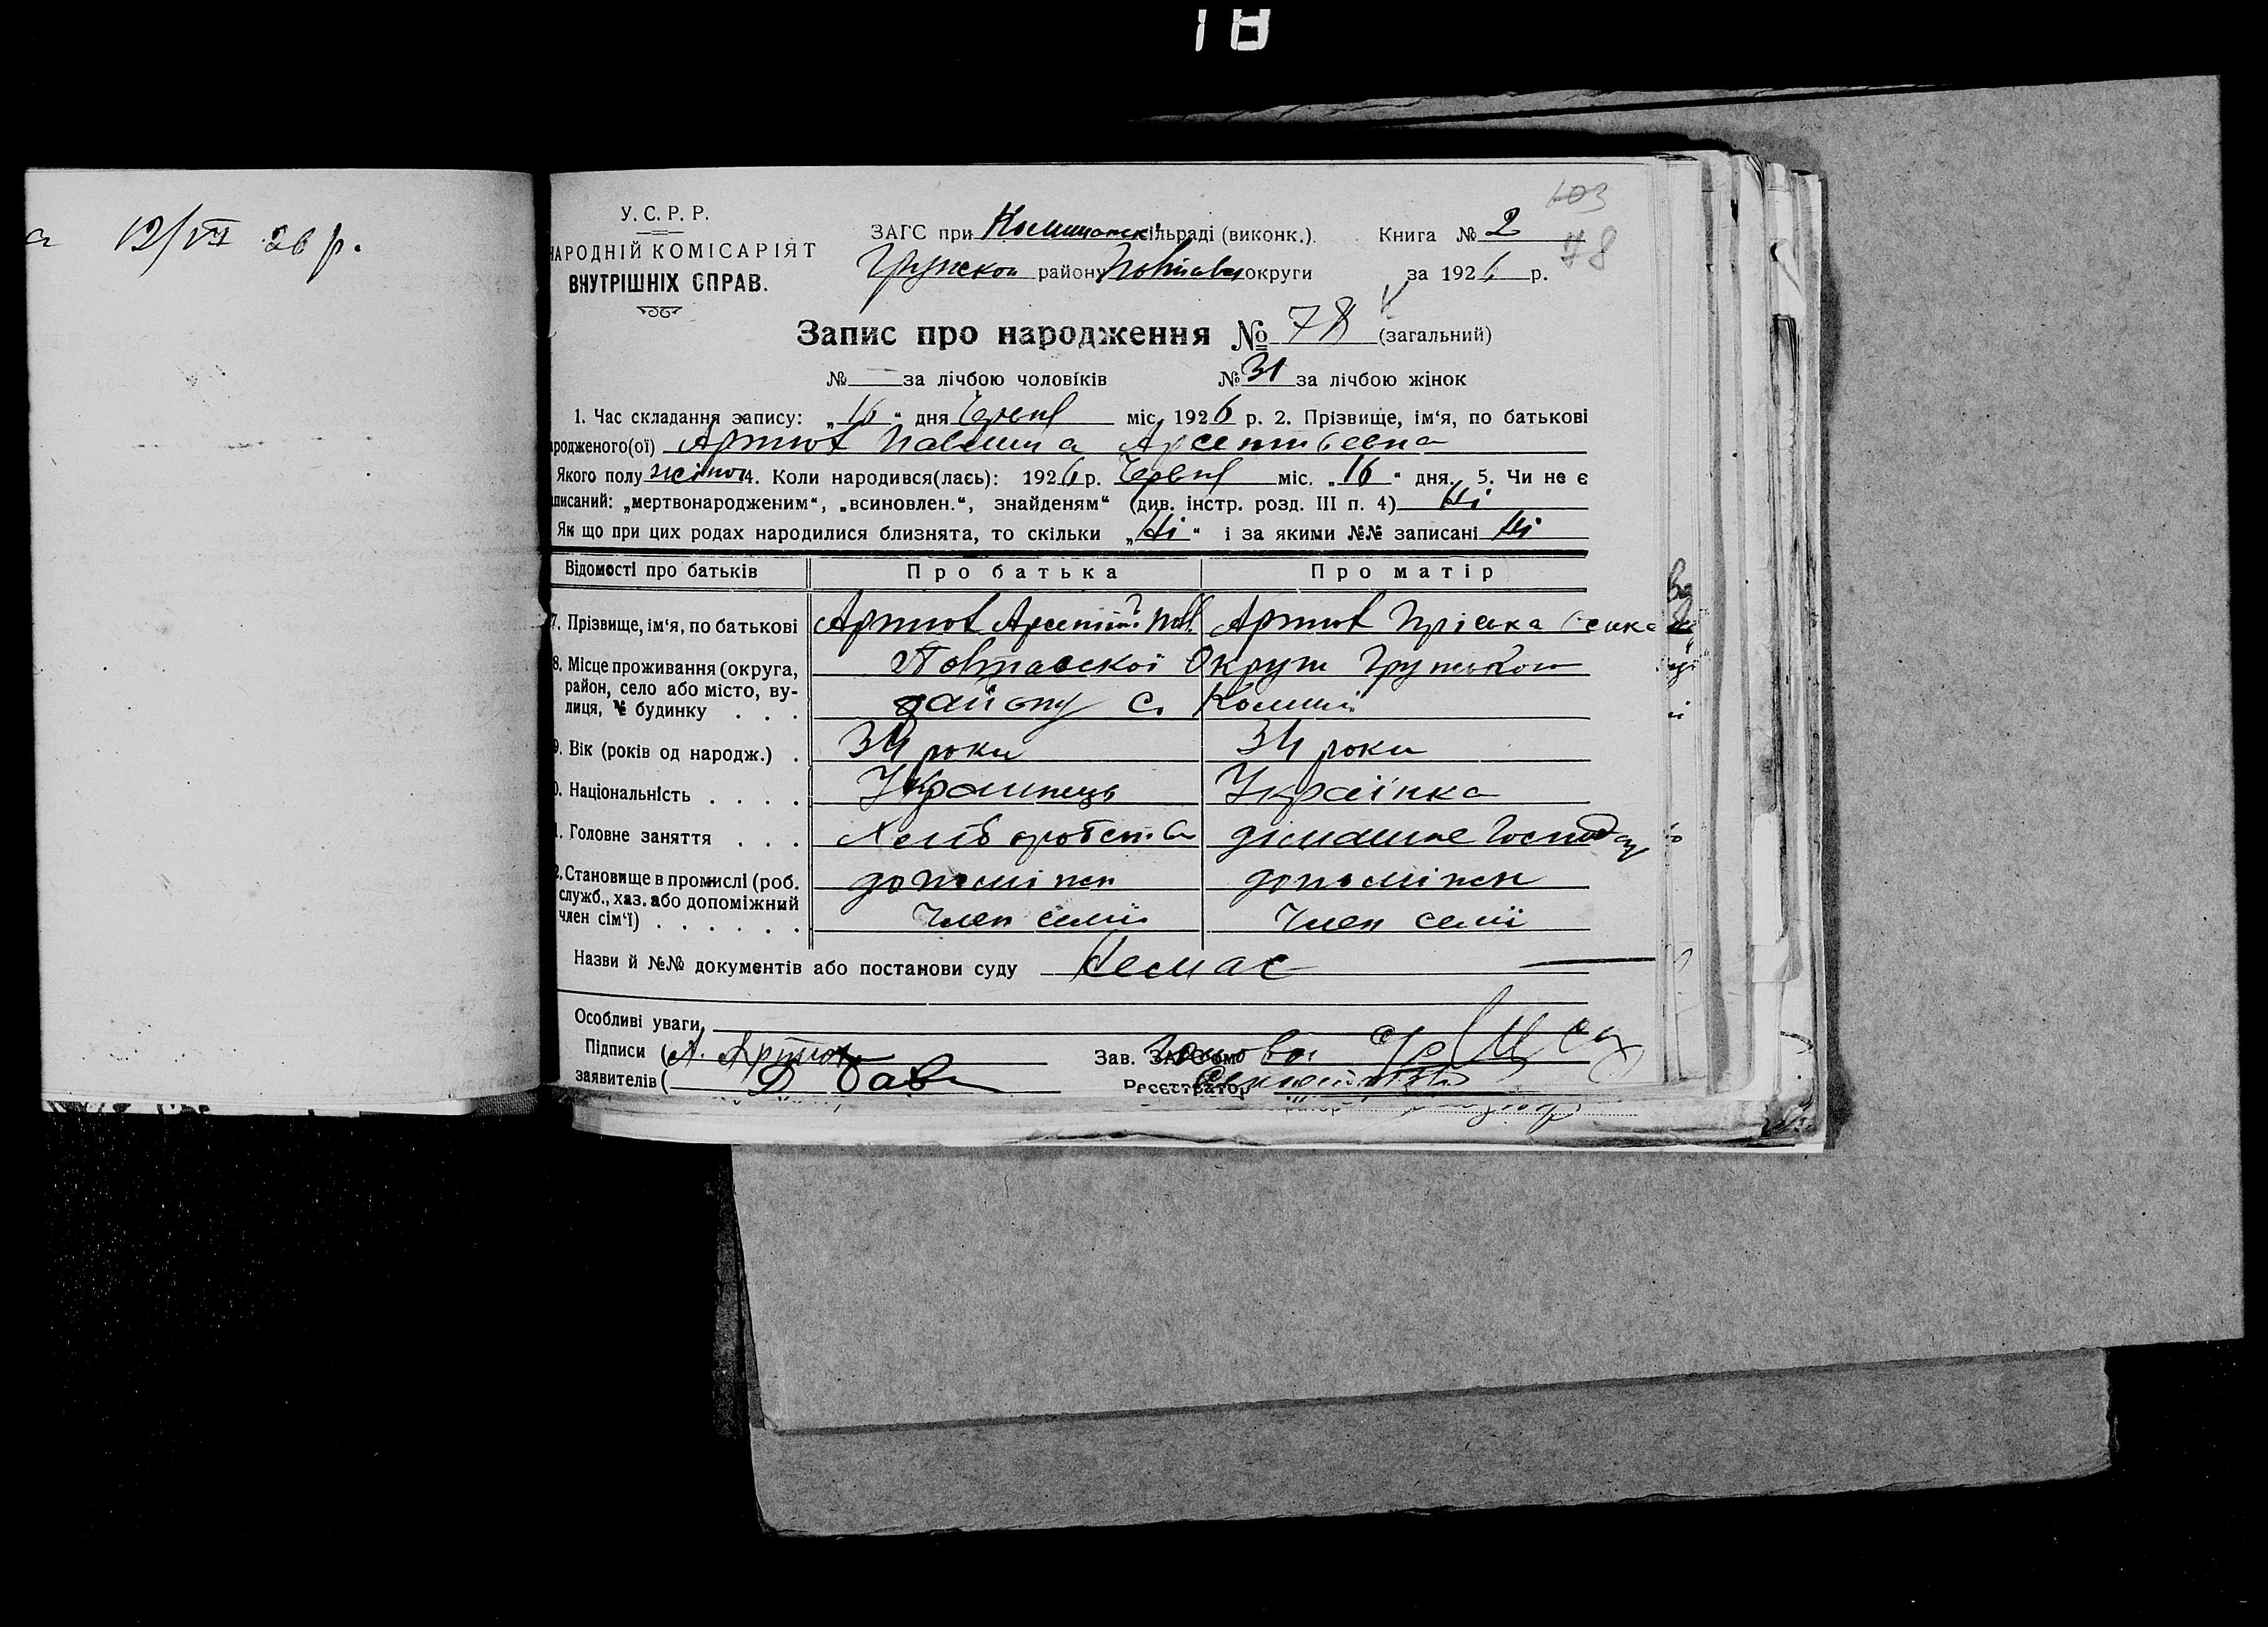 18
а 12/VI 26 р.
У. С. Р. Р.
НАРОДНІЙ КОМІСАРІЯТ
ВНУТРІШНІХ СПРАВ.
ЗАГС при сільраді (виконк.).
району Полтавськ округи
Книга № 2
за 1926 р.
103
78
Запис про народження № 78 (загальний)
№ — за лічбою чоловіків № 31 за лічбою жінок
1. Час складання запису: „16“ дня Червня міс. 1926 р. 2. Прізвище, ім‘я, по батькові
родженого(ої) Артюх Арсентьевна
Якого полу жіноч 4. Коли народився(лась): 1926 р. Червня міс. „16“ дня. 5. Чи не є
писаний: „мертвонародженим“, „всиновлен.“, знайденям“ (див. інстр. розд. III п. 4) Ні
Як що при цих родах народилися близнята, то скільки „Ні“ і за якими №№ записані Ні
Відомості про батьків Про батька Про матір
7. Прізвище, ім‘я, по батькові Артюх Арсентій Артюх Пріська
8. Місце проживання (округа, Полтавської Округи
район, село або місто, ву- району с.
лиця, № будинку . . .
9. Вік (років од народж.) . 34 роки 34 роки
0. Національність . . . . Українець Українка
1. Головне заняття . . . Хліборобство домашнє Господар
2. Становище в промислі (роб. допоміжн допоміжн
служб., хаз. або допоміжний
член сім‘ї) . . . . . . Член семії Член семії
Назви й №№ документів або постанови суду Немає
Особливі уваги
Підписи (А. Артюх
заявителів (
Зав. ЗАГС‘ом
Реєстратор